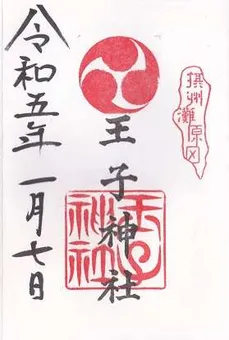 摂州
灘原田
王子神社
王子
神社
令和五年一月七日